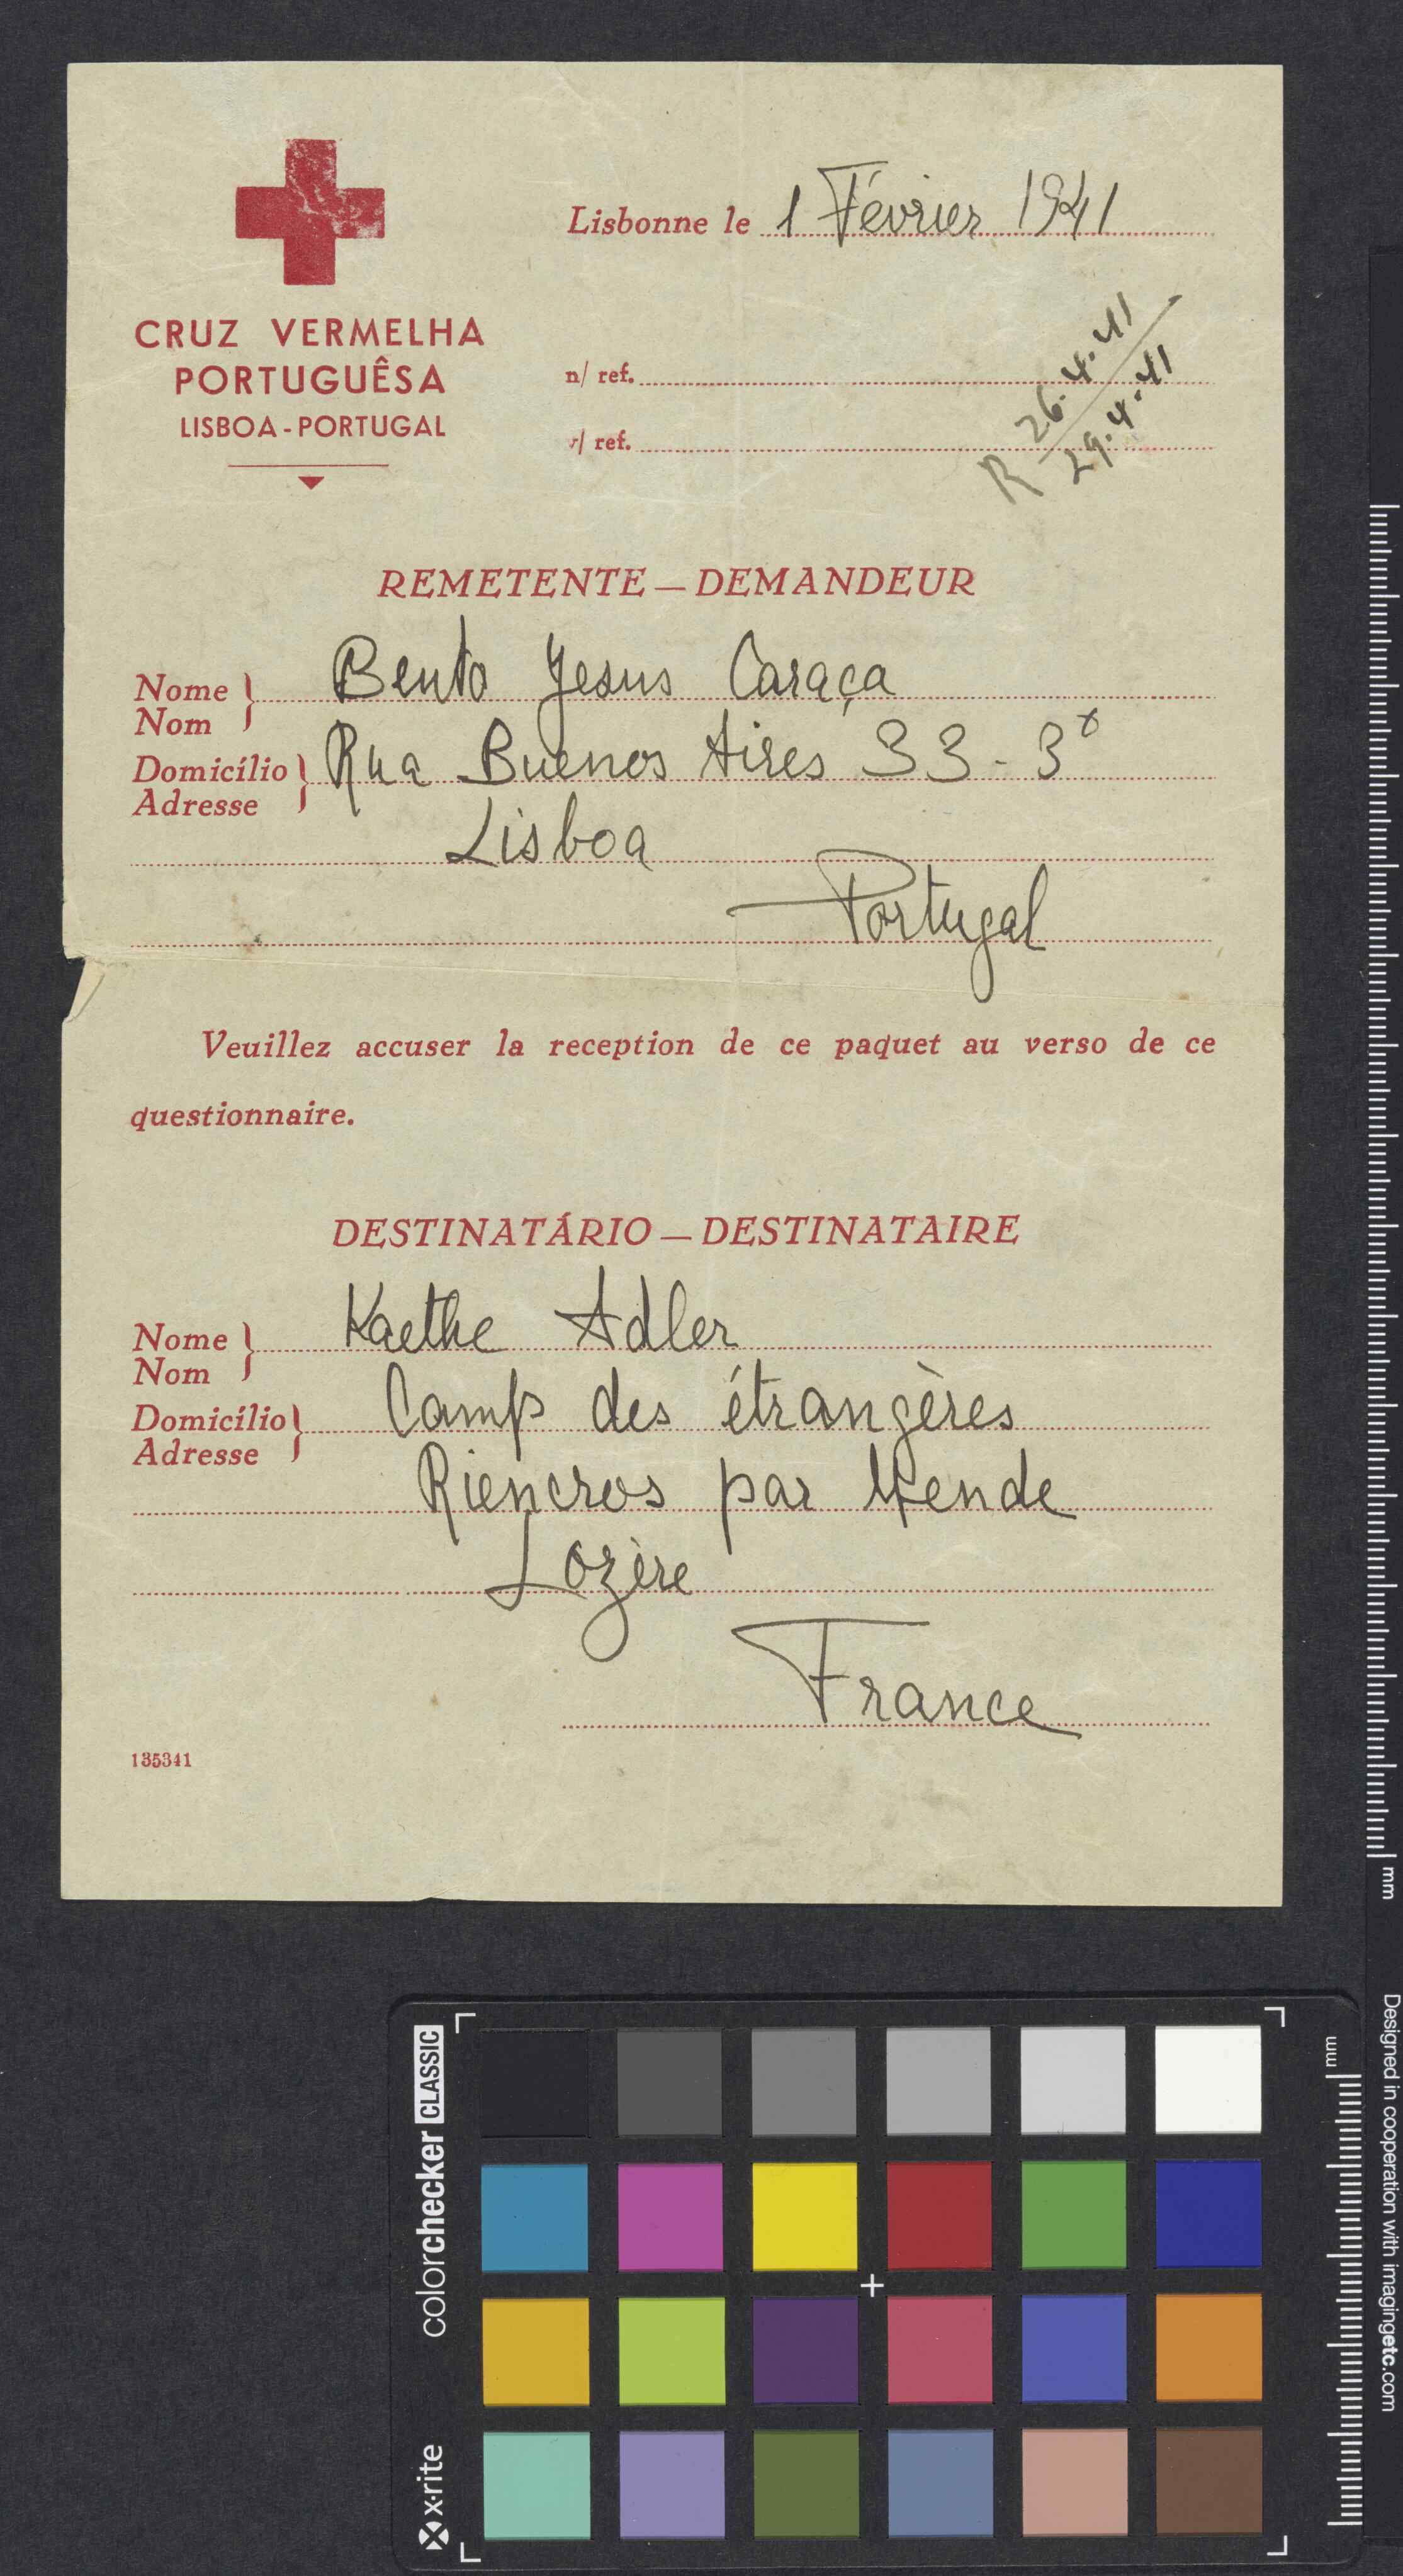 Lisbonne le 1 Février 1941
CRUZ VERMELHA
PORTUGUÊSA
LISBOA - PORTUGAL
n/ ref.
v/ ref.
R 26.4.41
29.4.41
REMETENTE — DEMANDEUR
Nome
Nom
Bento Jesus Caraça
Domicílio
Adresse
Rua Buenos Aires 33 - 3º
Lisboa
Portugal
Veuillez accuser la reception de ce paquet au verso de ce
questionnaire.
DESTINATÁRIO — DESTINATAIRE
Nome
Nom
Kaethe Adler
Domicílio
Adresse
Camp des étrangères
Riencros par Mende
Lozère
France
135341
mm
Designed in cooperation with imagingetc.com
mm
colorchecker CLASSIC
x-rite